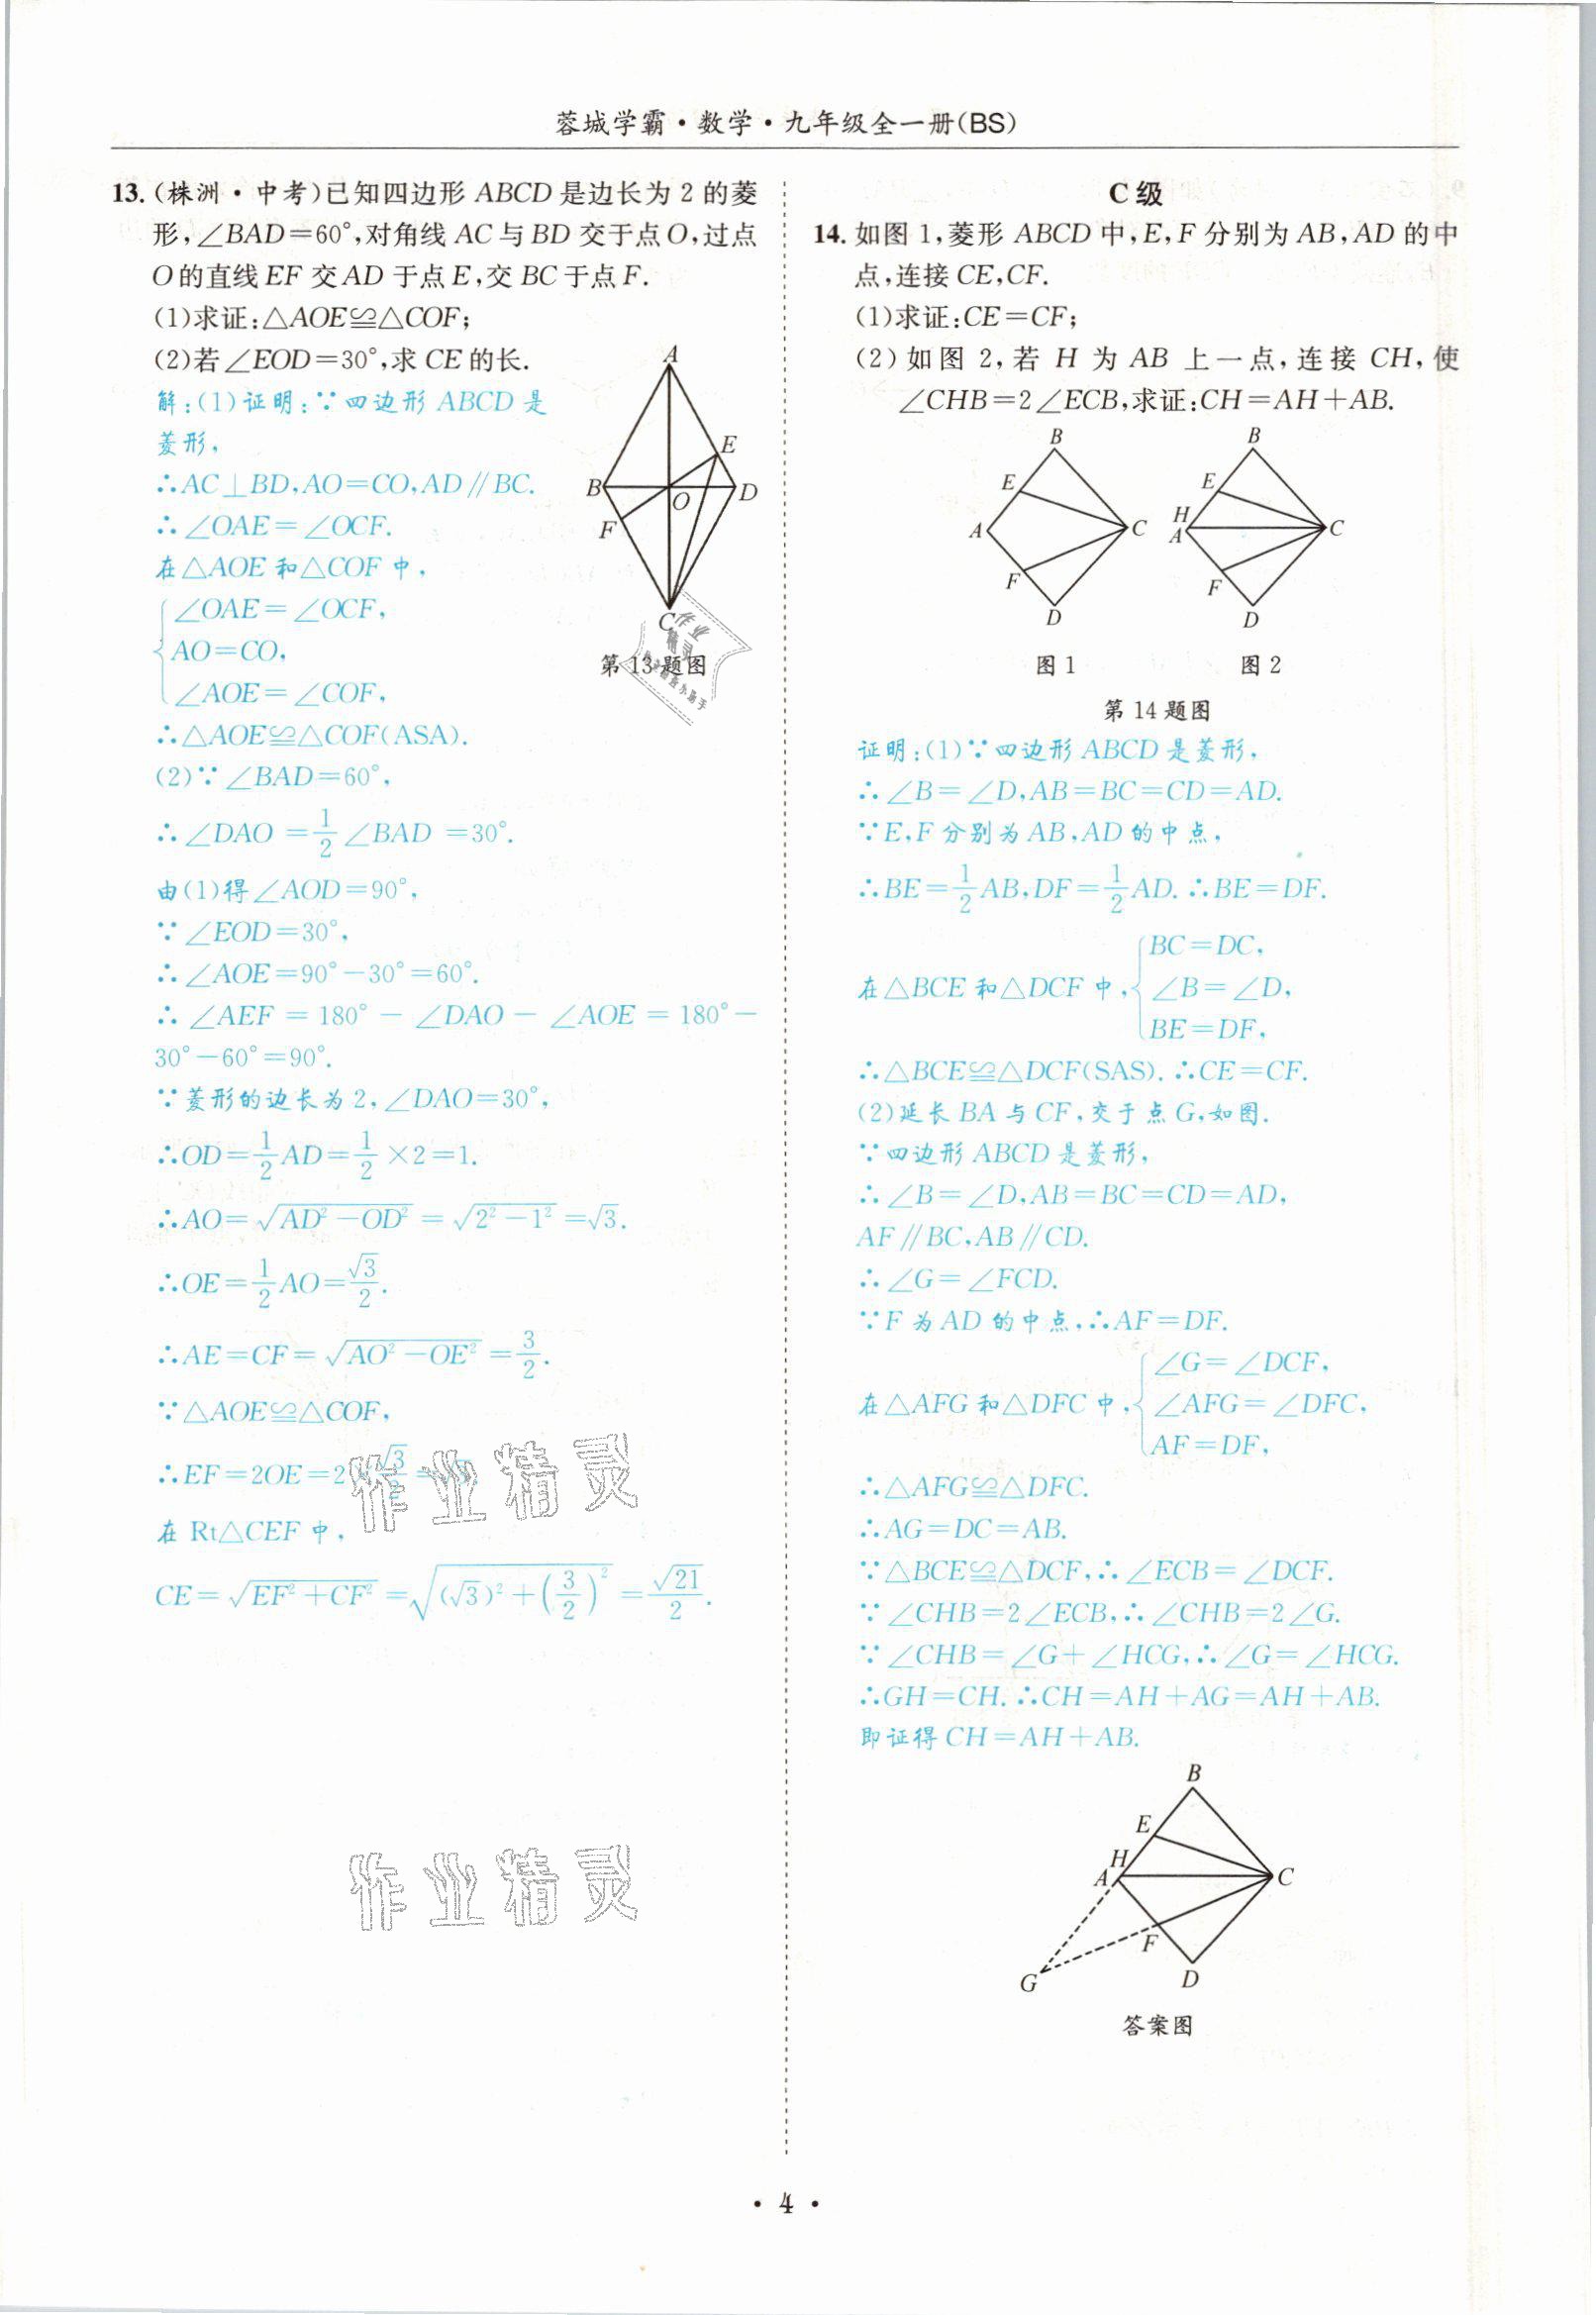 蓉城学霸·数学·九年级全一册(BS)
13.(株洲·中考)已知四边形ABCD是边长为2的菱
形,∠BAD=60°,对角线AC与BD交于点O,过点
O的直线EF交AD于点E,交BC于点F.
(1)求证:△AOE≌△COF;
(2)若∠EOD=30°,求CE的长.
解:(1)证明:∵四边形ABCD是
菱形,
∴AC⊥BD,AO=CO,AD∥BC.
∴∠OAE=∠OCF.
在△AOE和△COF中,
∠OAE=∠OCF,
AO=CO,
∠AOE=∠COF,
∴△AOE≌△COF(ASA).
A
E
B
O
D
F
C
第13题图
(2)∵∠BAD=60°,
∴∠DAO=1/2∠BAD=30°.
由(1)得∠AOD=90°,
∵∠EOD=30°,
∴∠AOE=90°-30°=60°.
∴∠AEF=180°-∠DAO-∠AOE=180°-
30°-60°=90°.
∵菱形的边长为2,∠DAO=30°,
∴OD=1/2AD=1/2×2=1.
∴AO=√(AD²-OD²)=√(2²-1²)=√3.
∴OE=1/2AO=√3/2.
∴AE=CF=√(AO²-OE²)=3/2.
∵△AOE≌△COF,
∴EF=2OE=2 √3/2=
在Rt△CEF中,
CE=√(EF²+CF²)=√((√3)²+(3/2)²)=√21/2.
作业精灵
作业精灵
C级
14.如图1,菱形ABCD中,E,F分别为AB,AD的中
点,连接CE,CF.
(1)求证:CE=CF;
(2)如图2,若H为AB上一点,连接CH,使
∠CHB=2∠ECB,求证:CH=AH+AB.
B
E
A
C
F
D
图1
B
E
H
A
C
F
D
图2
第14题图
证明:(1)∵四边形ABCD是菱形,
∴∠B=∠D,AB=BC=CD=AD.
∵E,F分别为AB,AD的中点,
∴BE=1/2AB,DF=1/2AD.∴BE=DF.
在△BCE和△DCF中,
BC=DC,
∠B=∠D,
BE=DF,
∴△BCE≌△DCF(SAS).∴CE=CF.
(2)延长BA与CF,交于点G,如图.
∵四边形ABCD是菱形,
∴∠B=∠D,AB=BC=CD=AD,
AF∥BC,AB∥CD.
∴∠G=∠FCD.
∵F为AD的中点,∴AF=DF.
在△AFG和△DFC中,
∠G=∠DCF,
∠AFG=∠DFC,
AF=DF,
∴△AFG≌△DFC.
∴AG=DC=AB.
∵△BCE≌△DCF,∴∠ECB=∠DCF.
∵∠CHB=2∠ECB,∴∠CHB=2∠G.
∵∠CHB=∠G+∠HCG,∴∠G=∠HCG.
∴GH=CH.∴CH=AH+AG=AH+AB.
即证得CH=AH+AB.
B
E
H
A
C
F
G
D
答案图
·4·